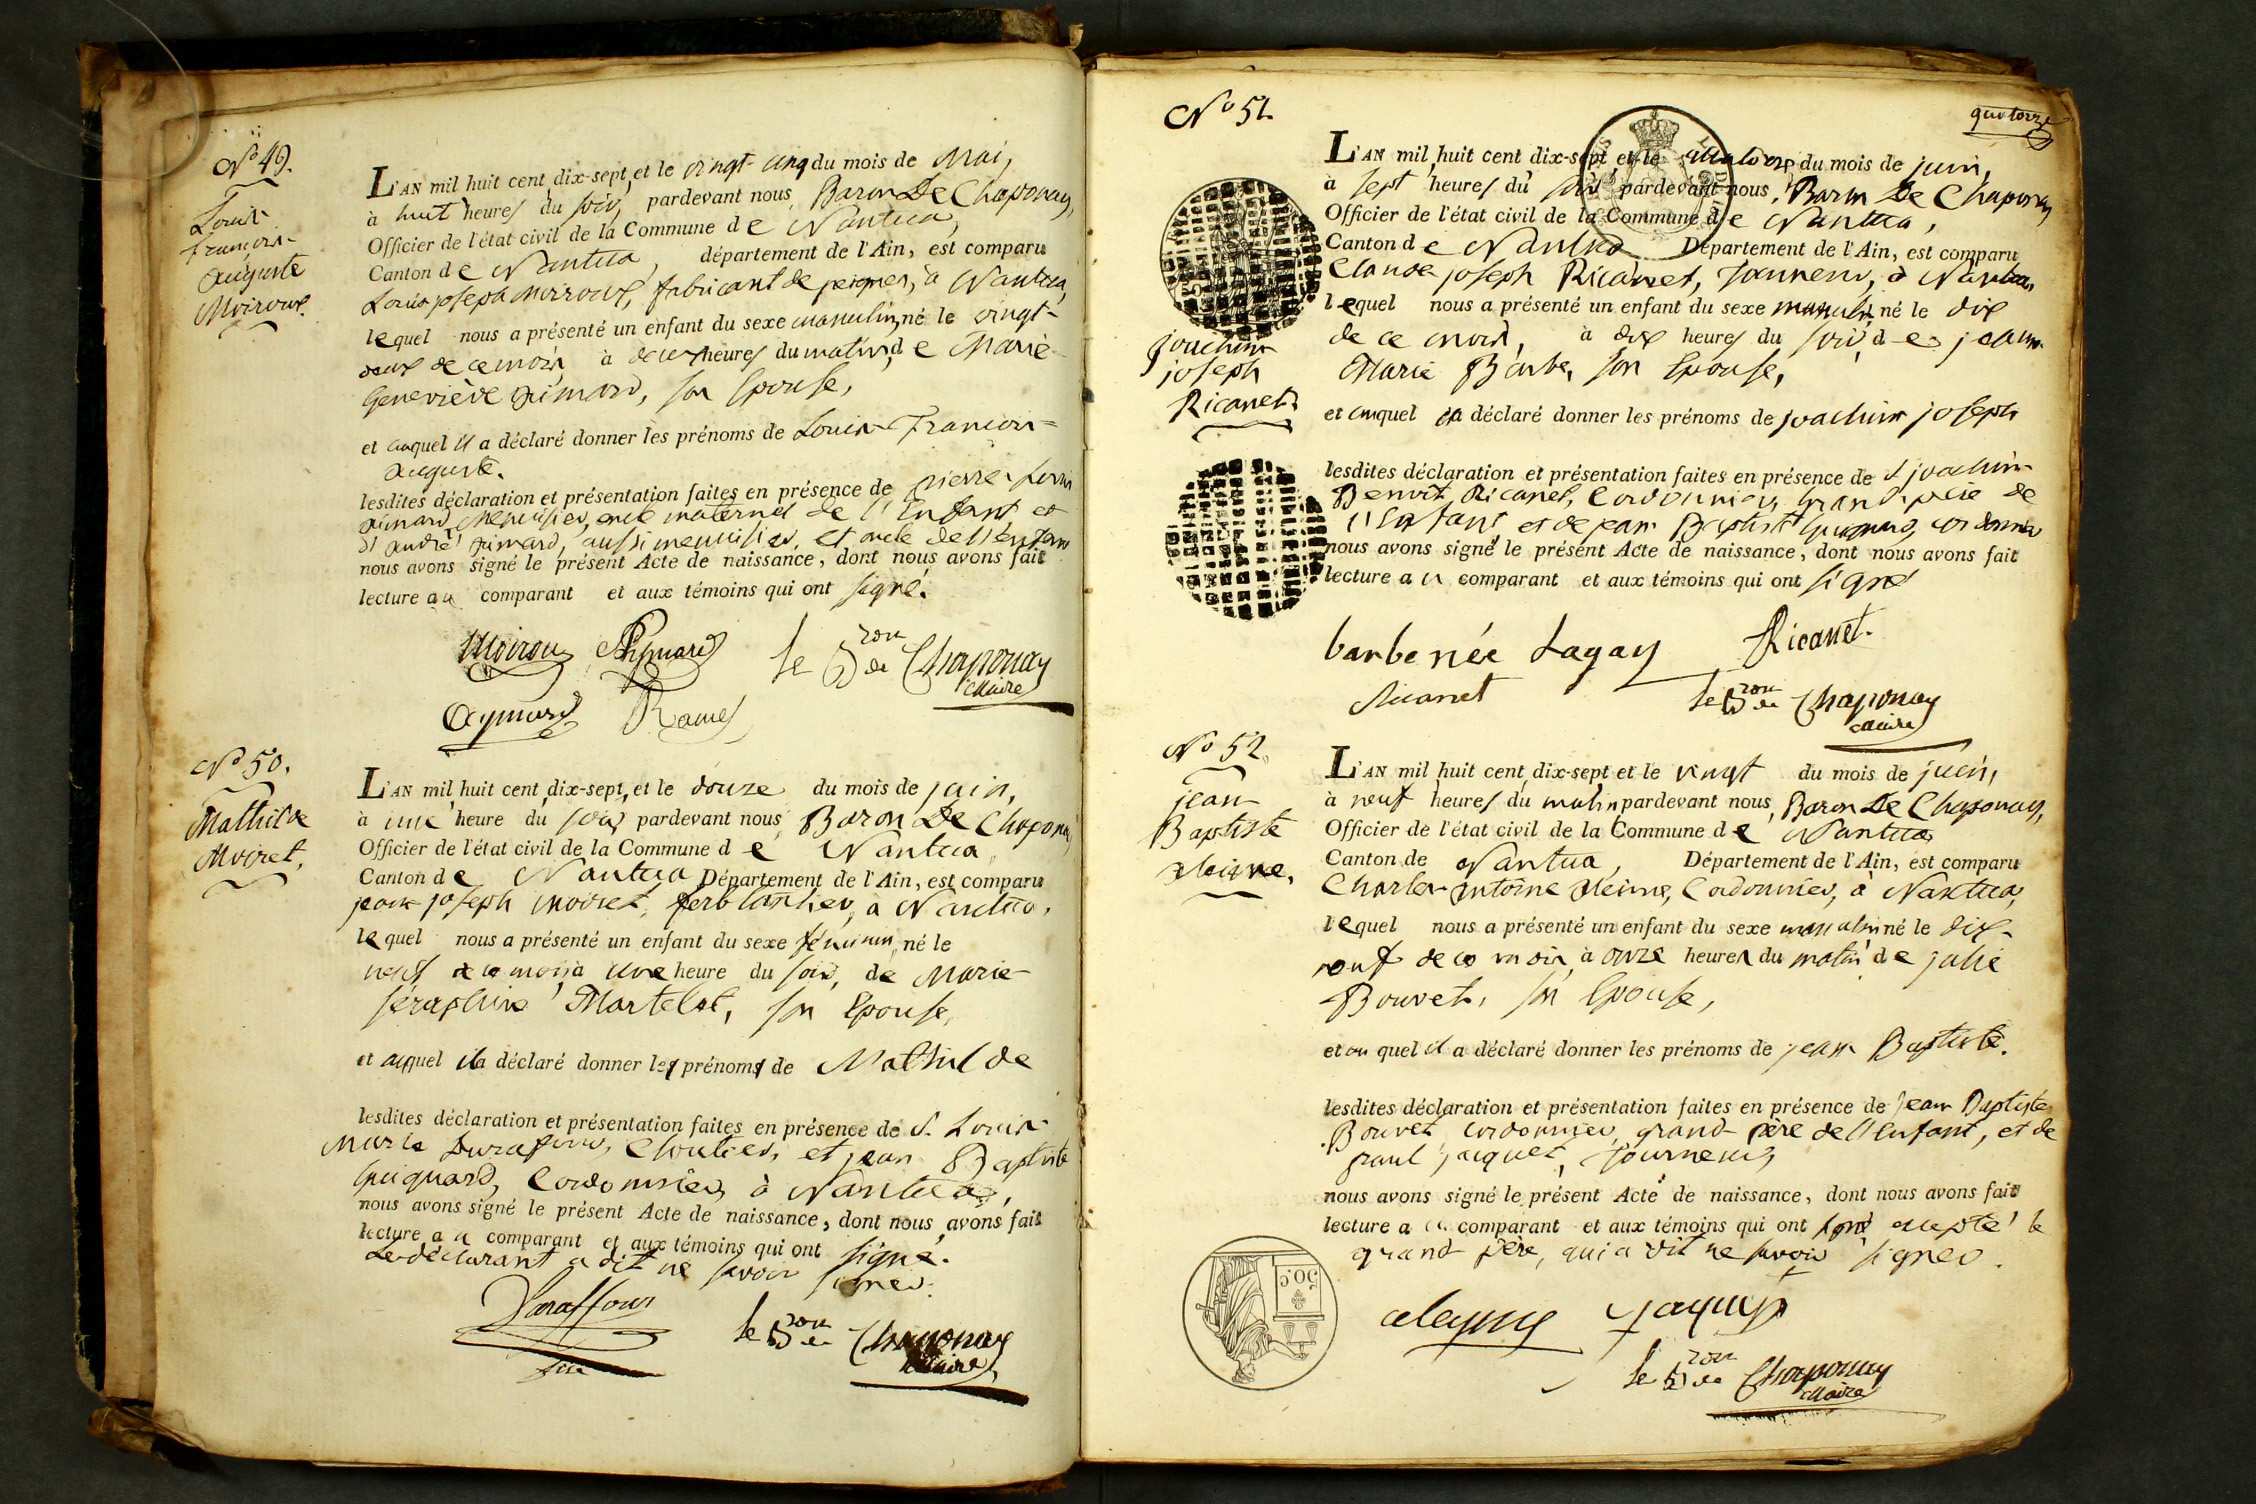 No 49.
Louis
François
Auguste
Moiroux.
L'AN mil huit cent dix-sept, et le vingt-cinq du mois de Mai,
à huit heures du soir, pardevant nous, Baron De Chaponay,
Officier de l'état civil de la Commune de Nantua,
Canton de Nantua, département de l'Ain, est comparu
Louis joseph Moiroux, fabricant de peignes, à Nantua,
lequel nous a présenté un enfant du sexe masculin, né le vingt-
deux de ce mois, à heures du matin, de Marie
Geneviève aimard, son Epouse,
et auquel il a déclaré donner les prénoms de Louis François
auguste.
lesdites déclaration et présentation faites en présence de pierre
aimard, menuisier, oncle maternel de l'Enfant et
dt andré aimard, aussi menuisier, et oncle de l'enfant
nous avons signé le présent Acte de naissance, dont nous avons fait
lecture au comparant et aux témoins qui ont signé.
Moiroux
Le Bon de Chaponay
Maire
Aymard Rame
No 50.
Mathilde
Moiret.
L'AN mil huit cent dix-sept, et le douze du mois de juin,
à une heure du soir pardevant nous Baron De Chaponay
Officier de l'état civil de la Commune de Nantua,
Canton de Nantua Département de l'Ain, est comparu
jean joseph moiret, ferblantier, à Nantua,
lequel nous a présenté un enfant du sexe féminin, né le
neuf de ce mois, à une heure du soir, de Marie
séraphine Martelet, son Epouse,
et auquel il a déclaré donner les prénoms de Mathilde
lesdites déclaration et présentation faites en présence de S. Louis
Marie et jean Baptiste
guiguard, Cordonnier, à Nantua,
nous avons signé le présent Acte de naissance, dont nous avons fait
lecture au comparant et aux témoins qui ont signé.
Le déclarant a dit ne savoir signer.
Le Bon de Chaponay
Maire
quatorze
No 51.
joachim
joseph
Ricanet
L'AN mil huit cent dix-sept, et le quatorze du mois de juin,
à sept heures du soir pardevant nous, Baron De Chaponay
Officier de l'état civil de la Commune de Nantua,
Canton de Nantua Département de l'Ain, est comparu
Claude joseph Ricanet, Tourneur, à Nantua,
lequel nous a présenté un enfant du sexe masculin, né le dix
de ce mois, à dix heures du soir, de jeanne
Marie Barbe, son Epouse,
et auquel il a déclaré donner les prénoms de joachim joseph
lesdites déclaration et présentation faites en présence de S joachim
Benoit Ricanet, Cordonnier, Grand père de
l'Enfant et de jean Baptiste guiguard, cordonnier
nous avons signé le présent Acte de naissance, dont nous avons fait
lecture au comparant et aux témoins qui ont signé
barbe née Lagay Ricanet.
Ricanet
Le Bon de Chaponay
Maire
No 52.
jean
Baptiste
L'AN mil huit cent dix-sept et le vingt du mois de juin,
à neuf heures du matin, pardevant nous, Baron De Chaponay,
Officier de l'état civil de la Commune de Nantua
Canton de Nantua, Département de l'Ain, est comparu
Charles antoine Cordonnier, à Nantua,
lequel nous a présenté un enfant du sexe masculin né le dix-
neuf de ce mois, à onze heures du matin de julie
Bouvet, son Epouse,
et auquel il a déclaré donner les prénoms de jean Baptiste.
lesdites déclaration et présentation faites en présence de jean Baptiste
Bouvet cordonnier, grand-père de l'Enfant, et de
paul jacquet, Tourneur,
nous avons signé le présent Acte de naissance, dont nous avons fait
lecture au comparant et aux témoins qui ont signé excepté le
grand père, qui a dit ne savoir signer.
50 C
Le Bon de Chaponay
Maire